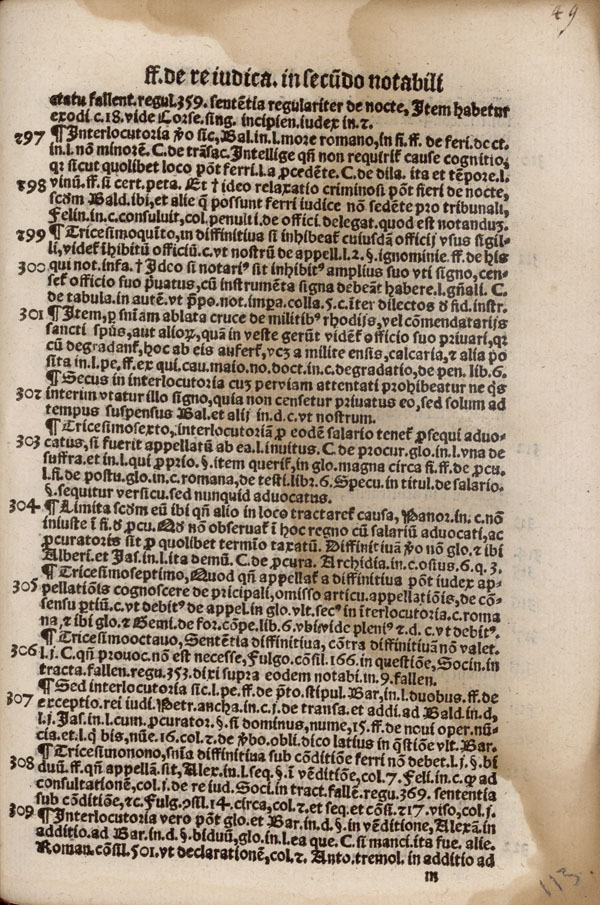 49
ff.de re iudica. in secũdo notabili
statu fallent.regul.359. sentẽtia regulariter de nocte, Item habetur
exodi c.18. vide Corse.sing. incipien.iudex in.2.
297 ¶ Interlocutoria ꝟo sic, Bal.in.l.more romano, in fi.ff. de feri.de ct.
in.l. nõ minorẽ. C. de trãsac. Intellige qñ non requirit᷑ cause cognitio,
qꝛ sicut quolibet loco põt ferri.l.a ꝓcedẽte. C. de dila. ita et tẽpore.l.
298 vinũ.ff.si cert.peta. Et † ideo relaxatio criminosi põt fieri de nocte,
scďm Bald.ibi, et alie q̃ possunt ferri iudice nõ sedẽte pro tribunali,
Felin.in.c. consuluit, col.penulti.de offici.delegat.quod est notanduz.
299 ¶ Tricesimoquĩto, in diffinitiua si inhibeat᷑ cuiusdã officij vsus sigil-
li, videt᷑ ĩhibitũ officiũ.c. vt nostrũ de appell.l.2.§.ignominie.ff.de his
300 qui not.infa. † Ideo si notari⁹ sit inhibit⁹ amplius suo vti signo, cen-
set᷑ officio suo p̃uatus, cũ instrumẽta signa debeãt habere.l.gñali. C.
de tabula.in autẽ.vt p̃po.not.imp̃a.colla.5.c.ĩter dilectos ď fid.instr.
301 ¶ Item, ꝑ snĩam ablata cruce de militib⁹ rhodijs, vel cõmendatarijs
sancti spũs, aut alioꝝ, quã in veste gerũt vidẽt᷑ officio suo priuari, qꝛ
cũ degradant᷑, hoc ab eis aufert᷑, vcz a milite ensis, calcaria, ⁊ alia p̃o
sita in.l.pe.ff.ex qui.cau.maio.no.doct.in.c.degradatio, de pen. lib.6.
¶ Secus in interlocutoria cuz perviam attentati prohibeatur ne q̃s
302 interim vtatur illo signo, quia non censetur priuatus eo, sed solum ad
tempus suspensus Bal.et alij in.d.c.vt nostrum.
¶ Tricesimosexto, interlocutoriã ꝓ eodẽ salario tenet᷑ ꝓsequi aduo-
303 catus, si fuerit appellatũ ab ea.l.inuitus. C. de procur.glo.in l.vna de
suffra.et in.l.qui ꝓprio.§.item querit᷑, in glo.magna circa fi.ff.de ꝓcu.
l.fi.de postu.glo.in c.romana, de testi.libr.6. Specu.in titul.de salario.
§.sequitur versicu.sed nunquid aduocatus.
304 ¶ Limita scďm eũ ibi qñ alio in loco tractaret᷑ causa, Panor.in.c.nõ
iniuste ĩ fi.ď ꝓcu. Qď nõ obseruat᷑ ĩ hoc regno cũ salariũ aduocati, ac
ꝓcuratoris sit ꝓ quolibet termĩo taxatũ. Diffinitiuã ꝟo nõ glo.⁊ ibi
Alberi.et Jas.in.l.ita demũ. C. de ꝓcura. Archidia.in.c.osius.6.q.3.
¶ Tricesimoseptimo, Quod qñ appellat᷑ a diffinitiua põt iudex ap-
305 pellatiõis cognoscere de pricipali, omisso articu.appellatiõis, de cõ-
sensu ꝑtiũ.c.vt debit⁹ de appel.in glo.vlt.sec⁹ in ĩterlocutoria.c roma
na, ⁊ ibi glo.⁊ Gemi.de for.cõpe.lib.6.vbivide pleni⁹ ⁊.d.c.vt debit⁹.
¶ Tricesimooctauo, Sentẽtia diffinitiua, cõtra diffinitiuã nõ valet.
306 l.j. C. qñ prouoc.nõ est necesse, Fulgo.cõsil.166.in questiõe, Socin.in
tracta.fallen.regu.353.dixi supra eodem notabi.in.9.fallen.
¶ Sed interlocutoria sic.l.pe.ff.de p̃to.stipul.Bar.in.l.duobus.ff.de
307 exceptio.rei iudi. Petr.ancha.in.c.j.de transa.et addi.ad Bald.in.d,
l.j.Jas.in.l.cum.ꝓcurator.§.si dominus, nume,15.ff.de noui oper.nũ-
cia.et.l.q̃ bis, nũe.16.col.2.de ꝟbo.obli.dico latius in q̃stiõe vlt. Bar.
¶ Tricesimonono, snĩa diffinitiua sub cõditiõe ferri nõ debet.l.j.§.bi
308 duũ.ff.qñ appellã.sit, Alex.in.l.seq.§.ĩ vẽditiõe, col.7. Feli.in.c.ꝙ ad
consultationẽ, col.j.de re iud. Soci.in tract.fallẽ.regu.369. sententia
sub cõditiõe, ⁊c. Fulg.ꝯsil.14.circa, col.2.et seq.et cõsi.217.viso, col.j.
309 ¶ Interlocutoria vero põt glo.et Bar.in.d.§.in vẽditione, Alexã.in
additio.ad Bar.in.d.§.biduũ, glo.in.l.ea que. C. si manci.ita fue. alie.
Roman.cõsil.501.vt declarationẽ, col.2. Anto.tremol.in additio ad
m
113